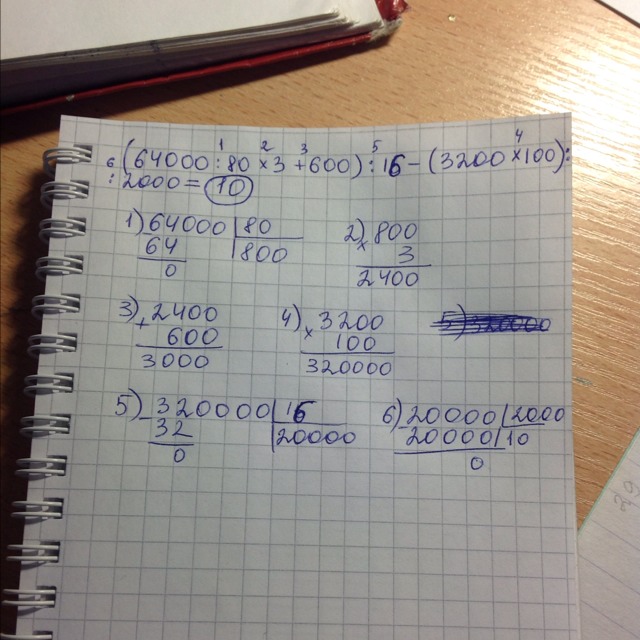 1 2 3 5 4
6 (64000:80×3+600):16-(3200×100):
:2000=10
1) 64000 80
64 800
0
2) 800
× 3
2400
3) 2400
+ 600
3000
4) 3200
× 100
320000
5) - 320000 16
32 20000
0
6) - 20000 2000
20000 10
0